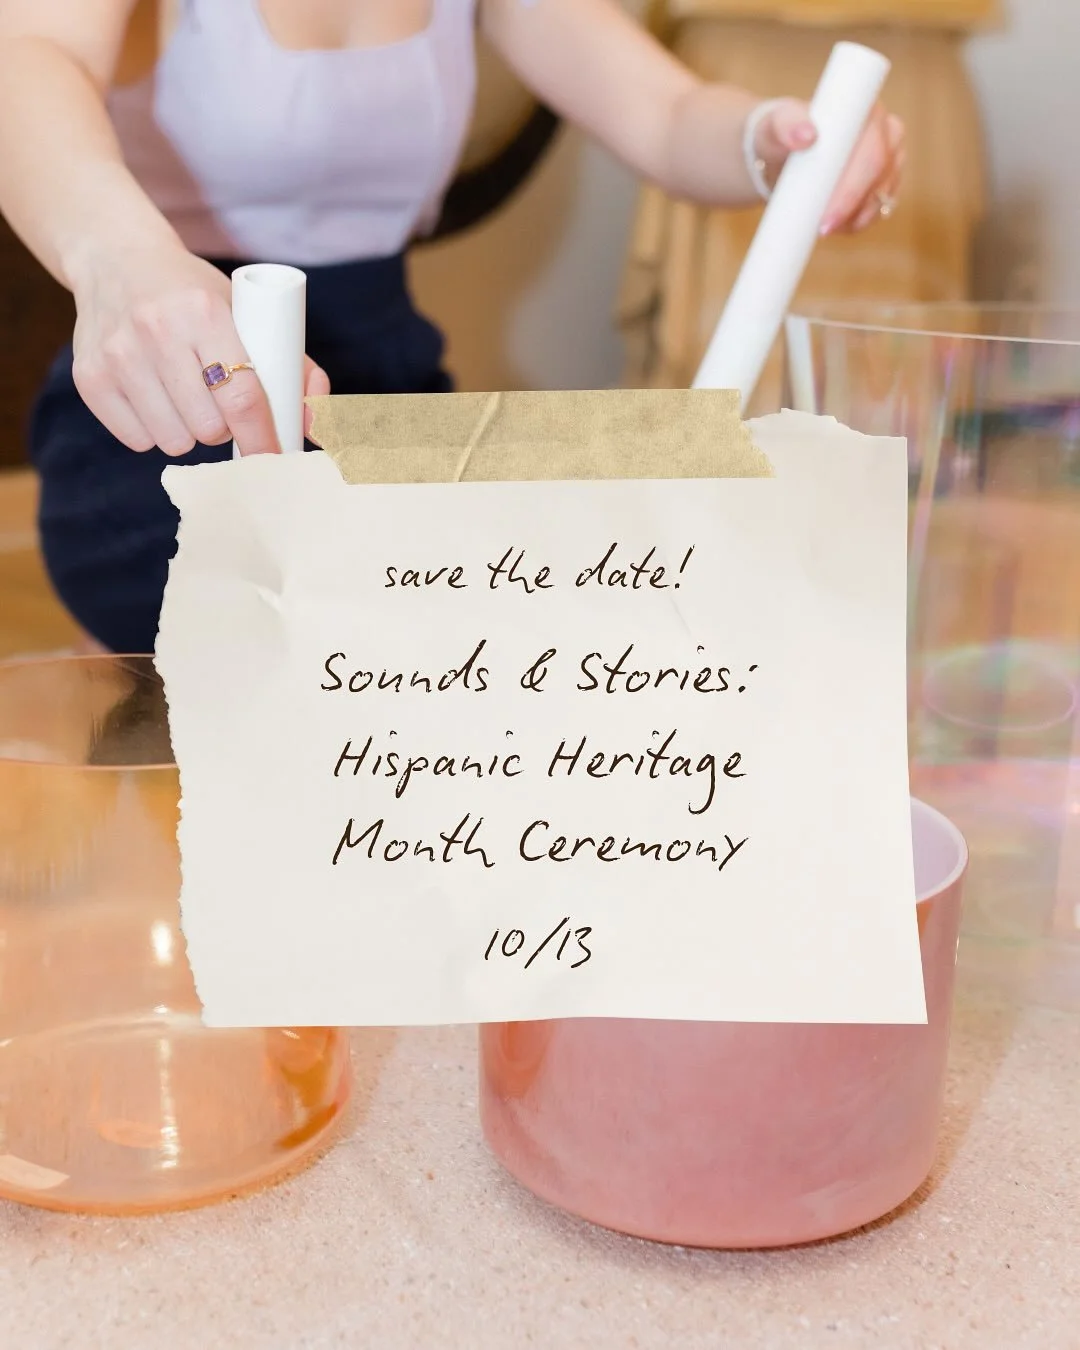 save the date!
Sounds & Stories:
Hispanic Heritage
Month Ceremony
10/13